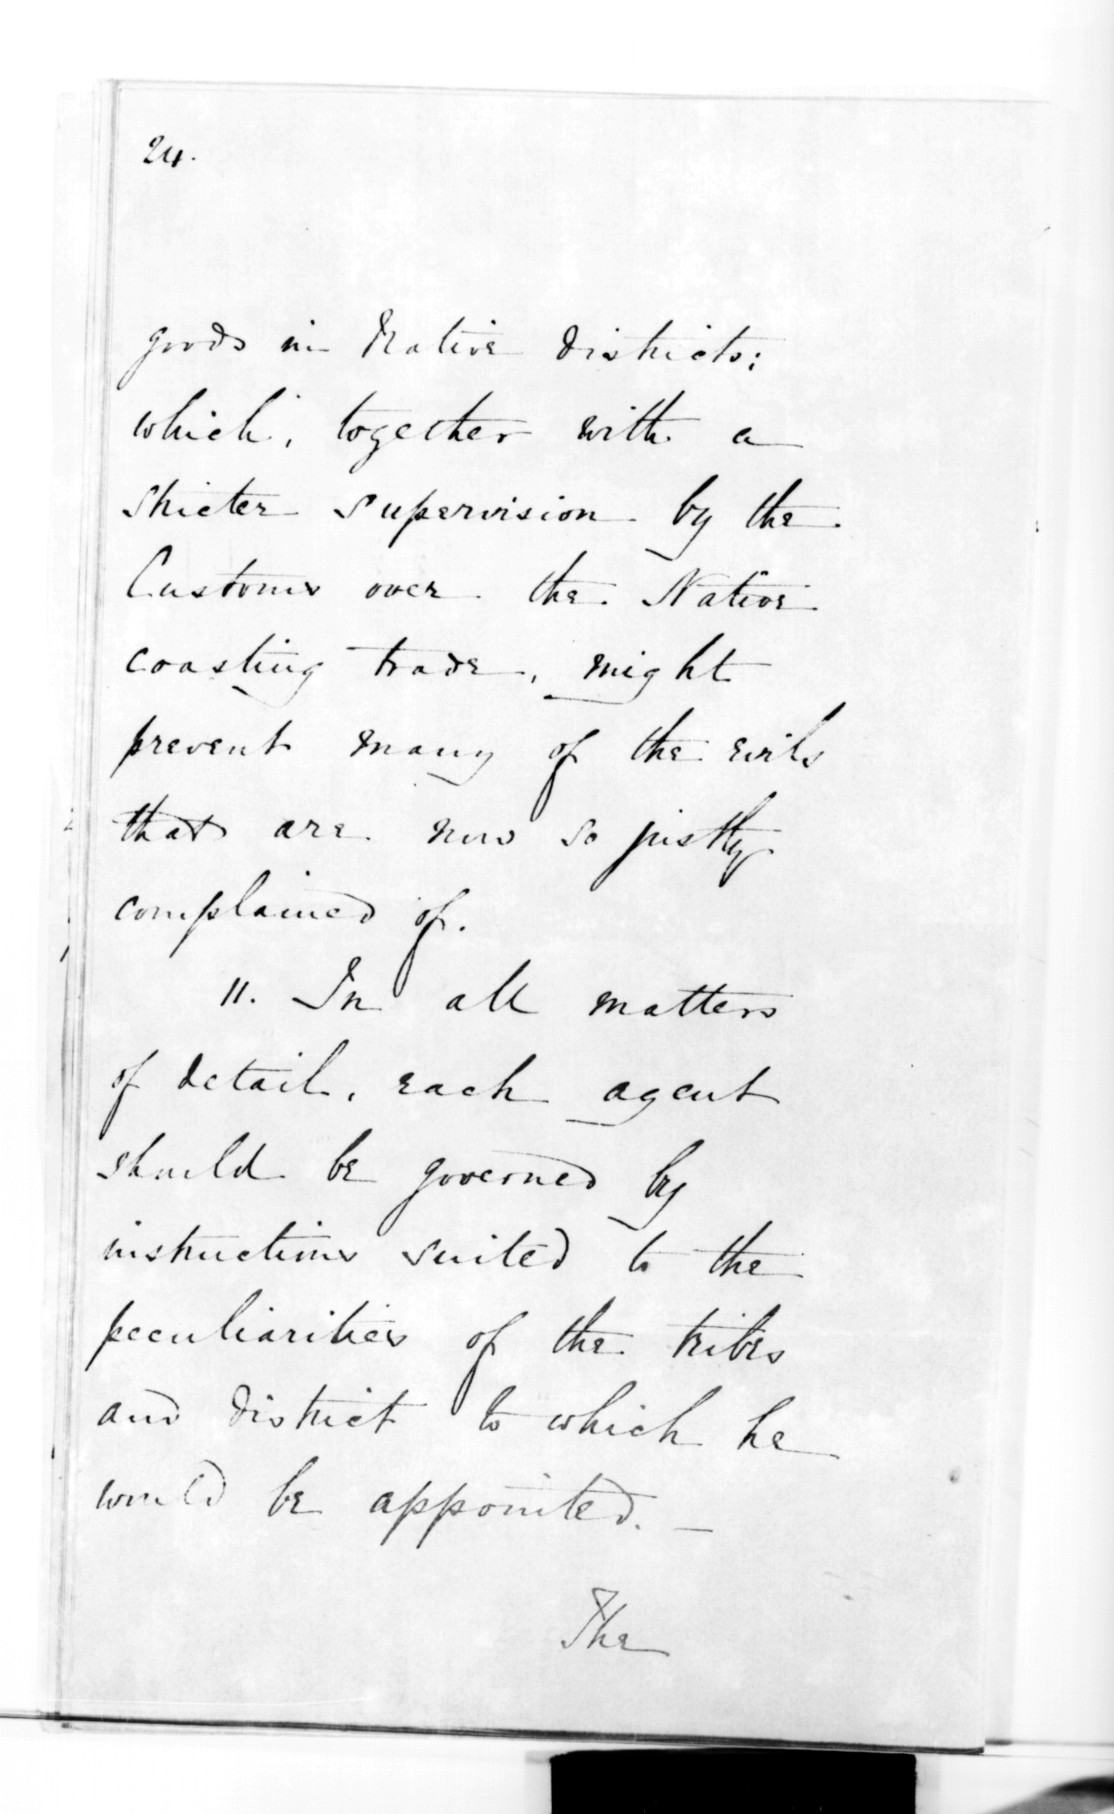 24.
goods in Native districts;
which, together with a
stricter supervision by the
Customs over the Native
coasting trade, might
prevent many of the evils
that are now so justly
complained of.
11. In all matters
of detail, each agent
should be governed by
instructions suited to the
peculiarities of the tribes
and district to which he
would be appointed. —
The